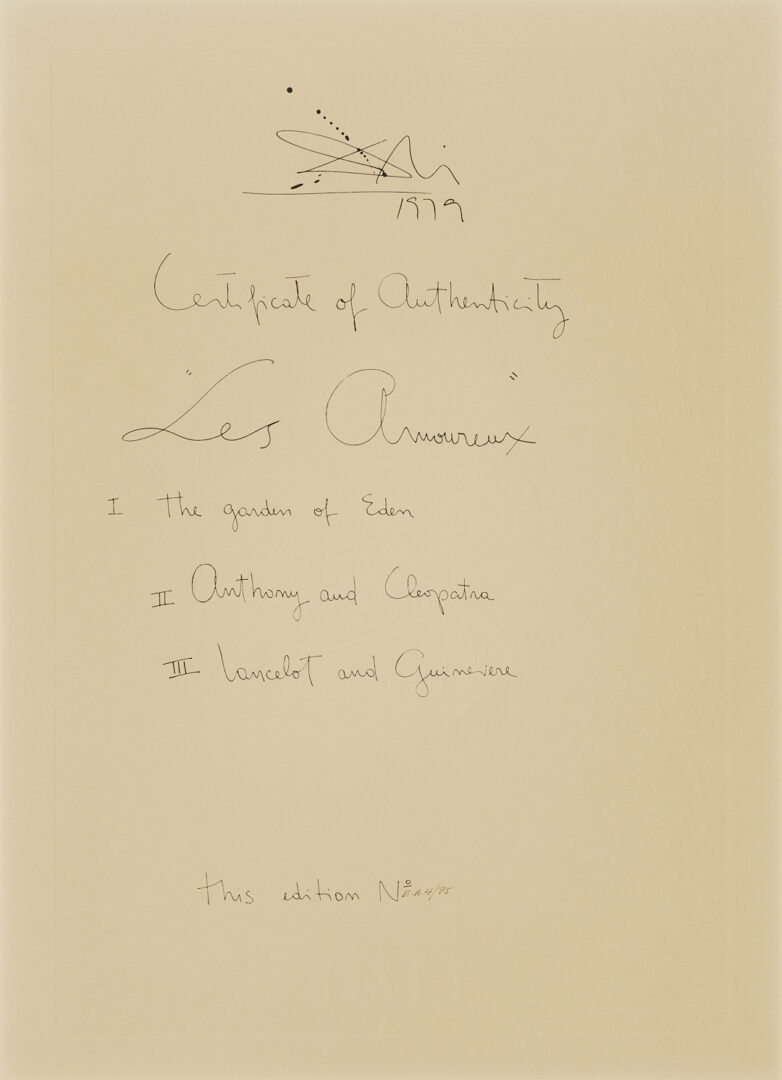 Dali
1979
Certificate of Authenticity
"Les Amoureux"
I the garden of Eden
II Anthony and Cleopatra
III Lancelot and Guinevere
this edition Nº E.A. 4/75
DALÍ